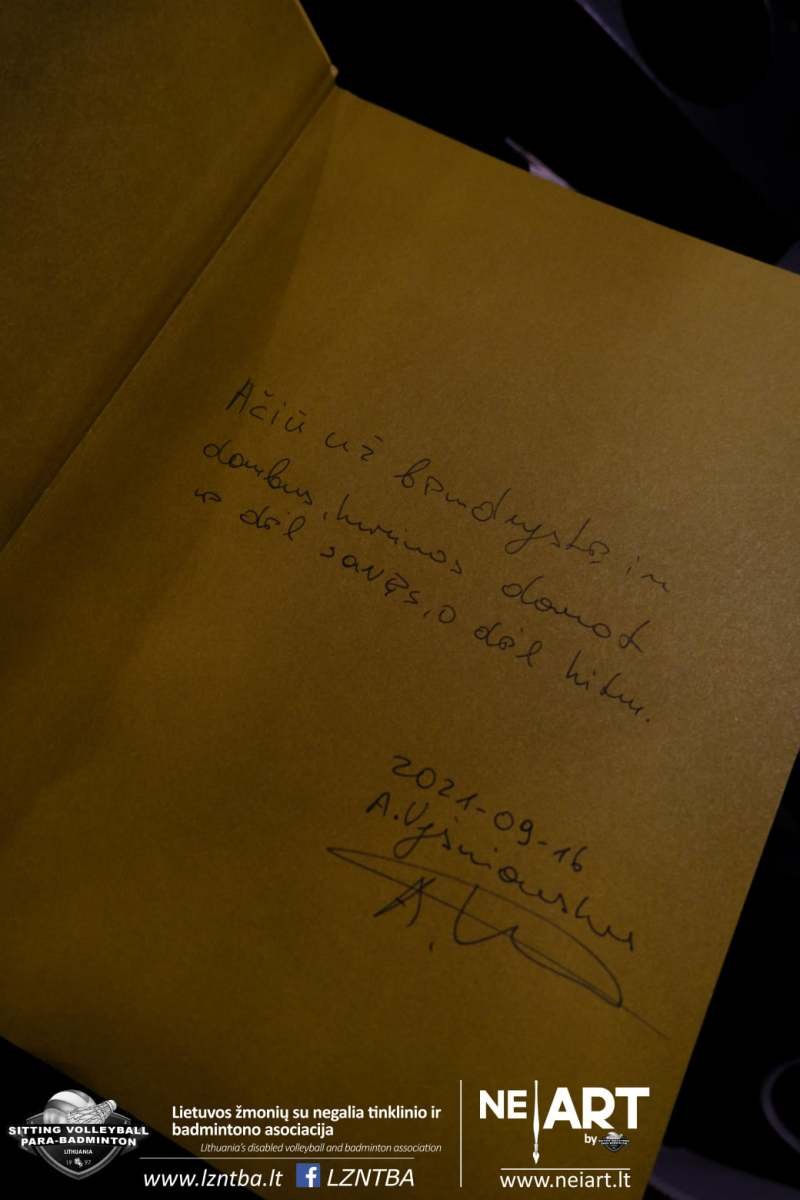 Ačiū už bendrystę ir
darbus, kuriuos darot
ne dėl savęs, o dėl kitų.
2021-09-16
A. Vyšniauskas
SITTING VOLLEYBALL
PARA-BADMINTON
LITHUANIA
1997
Lietuvos žmonių su negalia tinklinio ir
badmintono asociacija
Lithuania's disabled volleyball and badminton association
www.lzntba.lt LZNTBA
NE ART
by
www.neiart.lt